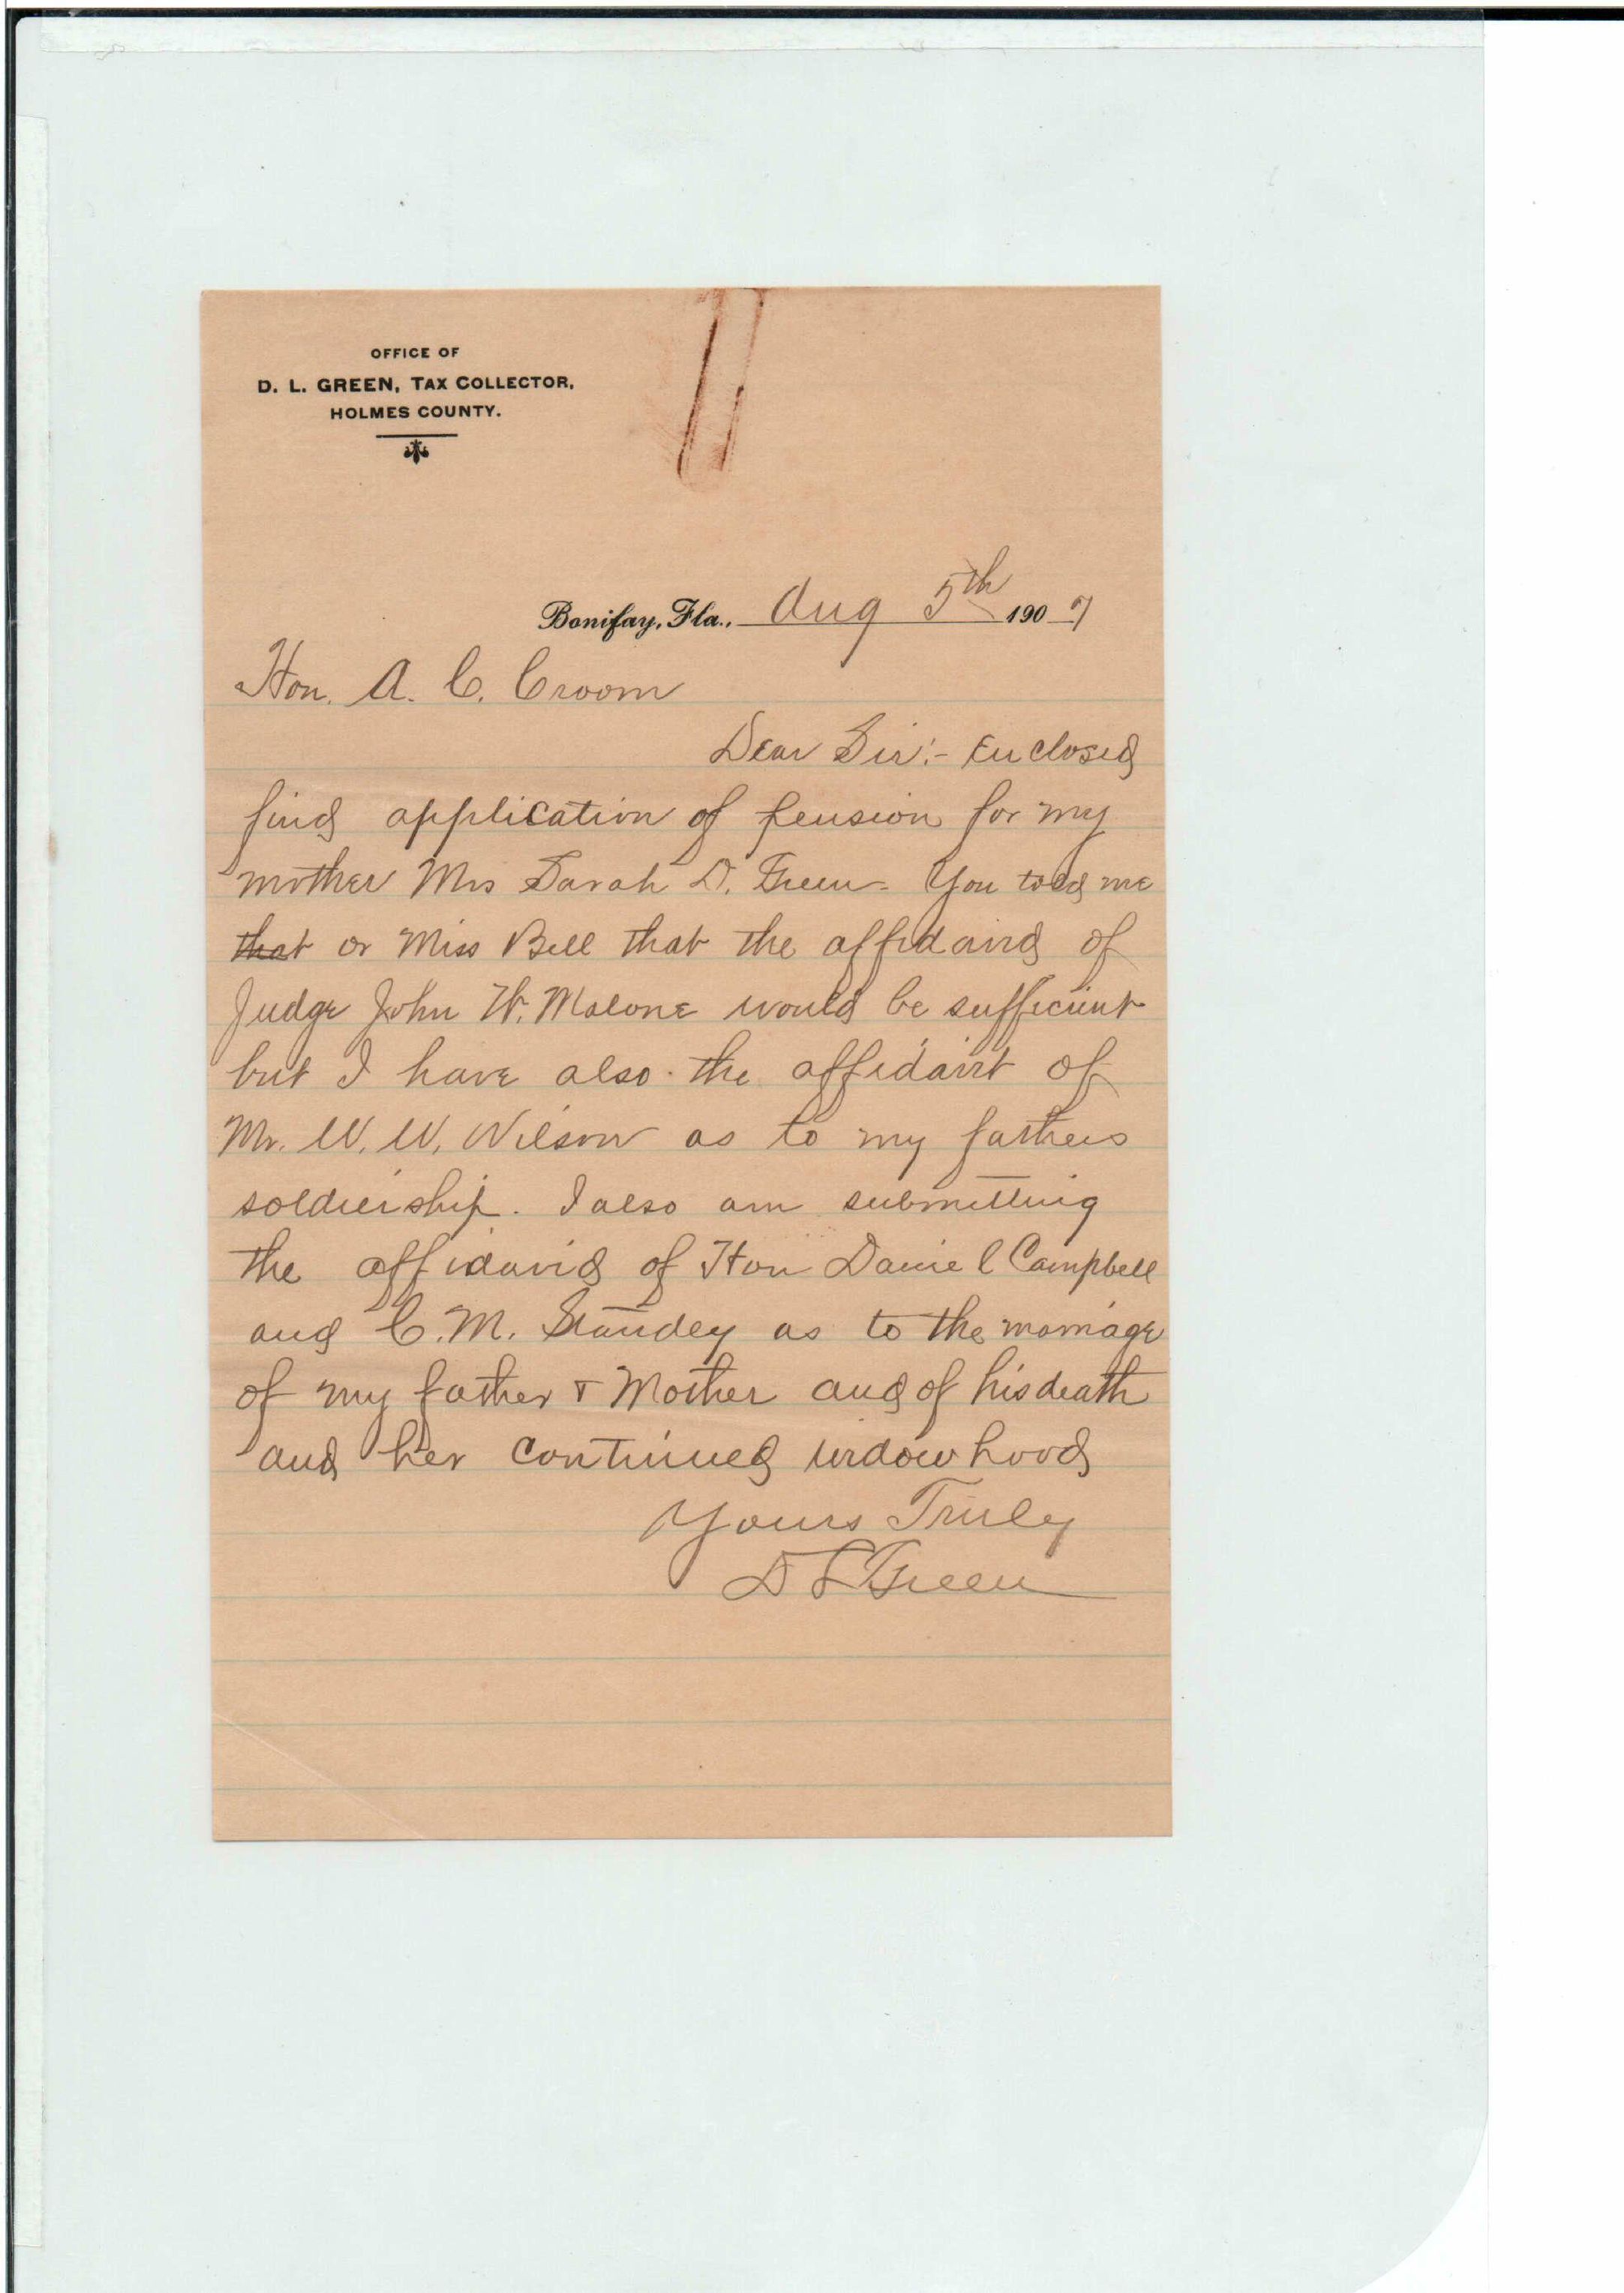 OFFICE OF
D. L. GREEN, TAX COLLECTOR,
HOLMES COUNTY.
Bonifay, Fla., Aug 5th 1907
Hon. A. C. Croom
Dear Sir:- Enclosed
find application of pension for my
mother Mrs Sarah D. Green - You told me
that or Miss Bell that the affidavid of
Judge John W. Malone would be sufficient
but I have also the affidavit of
Mr. W. W. Wilson as to my fathers
soldiership. I also am submitting
the affidavid of Hon Daniel Campbell
and C. M. Standey as to the marriage
of my father & Mother and of his death
and her continued widowhood
Yours Truly
D L Green